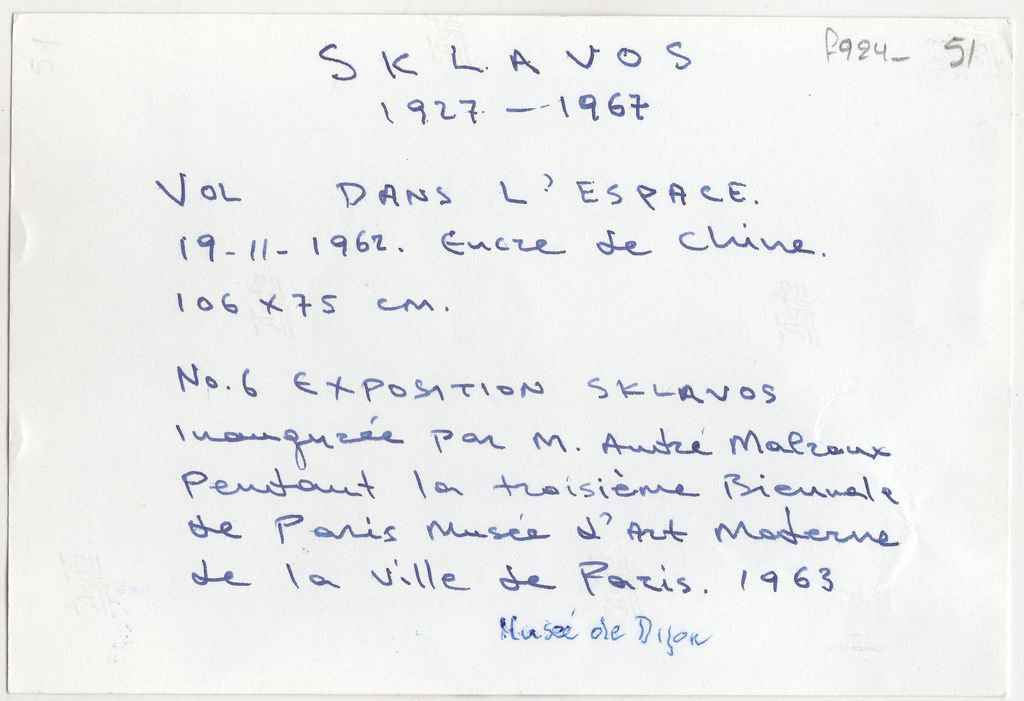 SKLAVOS
f924_ 51
1927 — 1967
VOL DANS L'ESPACE.
19-11-1962. Encre de Chine.
106 x 75 cm.
No.6 EXPOSITION SKLAVOS
inaugurée par M. André Malraux
Pendant la troisième Biennale
de Paris Musée d'Art Moderne
de la ville de Paris. 1963
Musée de Dijon